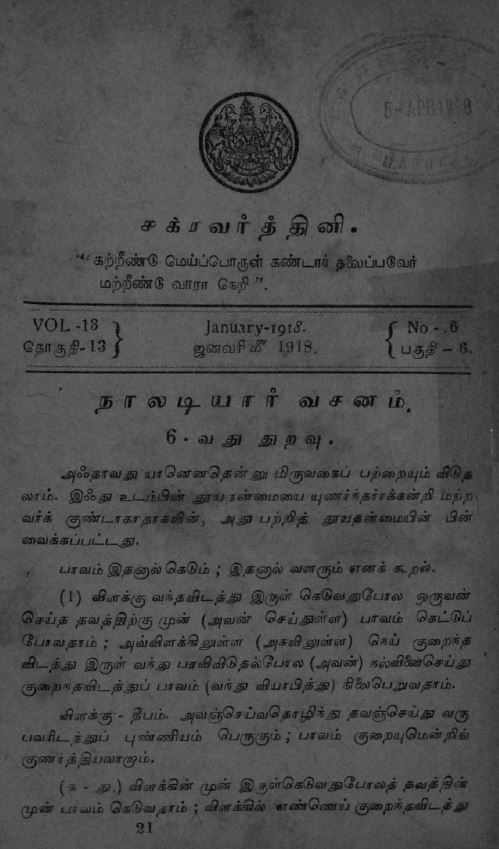 5-APR 19 8
சக்ரவர்த்தினி.
“கற்றீண்டு மெய்ப்பொருள் கண்டார் தலைப்படுவேர்
மற்றீண்டு வாரா நெறி”.
VOL -13
தொகுதி-13
January-1918.
ஜனவரிமீ 1918.
No - .6
பகுதி – 6.
நாலடியார் வசனம்.
6 - வது துறவு.
அஃதாவது யானெனதென்னு மிருவகைப் பற்றையும் விடுத
லாம். இஃது உடம்பின் தூயதன்மையை யுணர்ந்தார்க்கன்றி மற்ற
வர்க் குண்டாகாதாகலின், அதுபற்றித் தூயதன்மையின் பின்
வைக்கப்பட்டது.
பாவம் இதனால் கெடும் ; இதனால் வளரும் எனக் கூறல்.
(1) விளக்கு வந்தவிடத்து இருள் கெடுவதுபோல ஒருவன்
செய்த தவத்திற்கு முன் (அவன் செய்துள்ள) பாவம் கெட்டுப்
போவதாம் ; அவ்விளக்கிலுள்ள (அகலிலுள்ள) நெய் குறைந்த
விடத்து இருள் வந்து பரவிவிடுதல்போல (அவன்) நல்வினைசெய்து
குறைந்தவிடத்துப் பாவம் (வந்து வியாபித்து) நிலைபெறுவதாம்.
விளக்கு - தீபம். அவஞ்செய்வதொழிந்து தவஞ்செய்து வரு
பவரிடத்துப் புண்ணியம் பெருகும் ; பாவம் குறையுமென்றிங்
குணர்த்தியவாறாம்.
(க - து.) விளக்கின் முன் இருள்கெடுவதுபோலத் தவத்தின்
முன் பாவம் கெடுவதாம் ; விளக்கில் எண்ணெய் குறைந்தவிடத்து
21